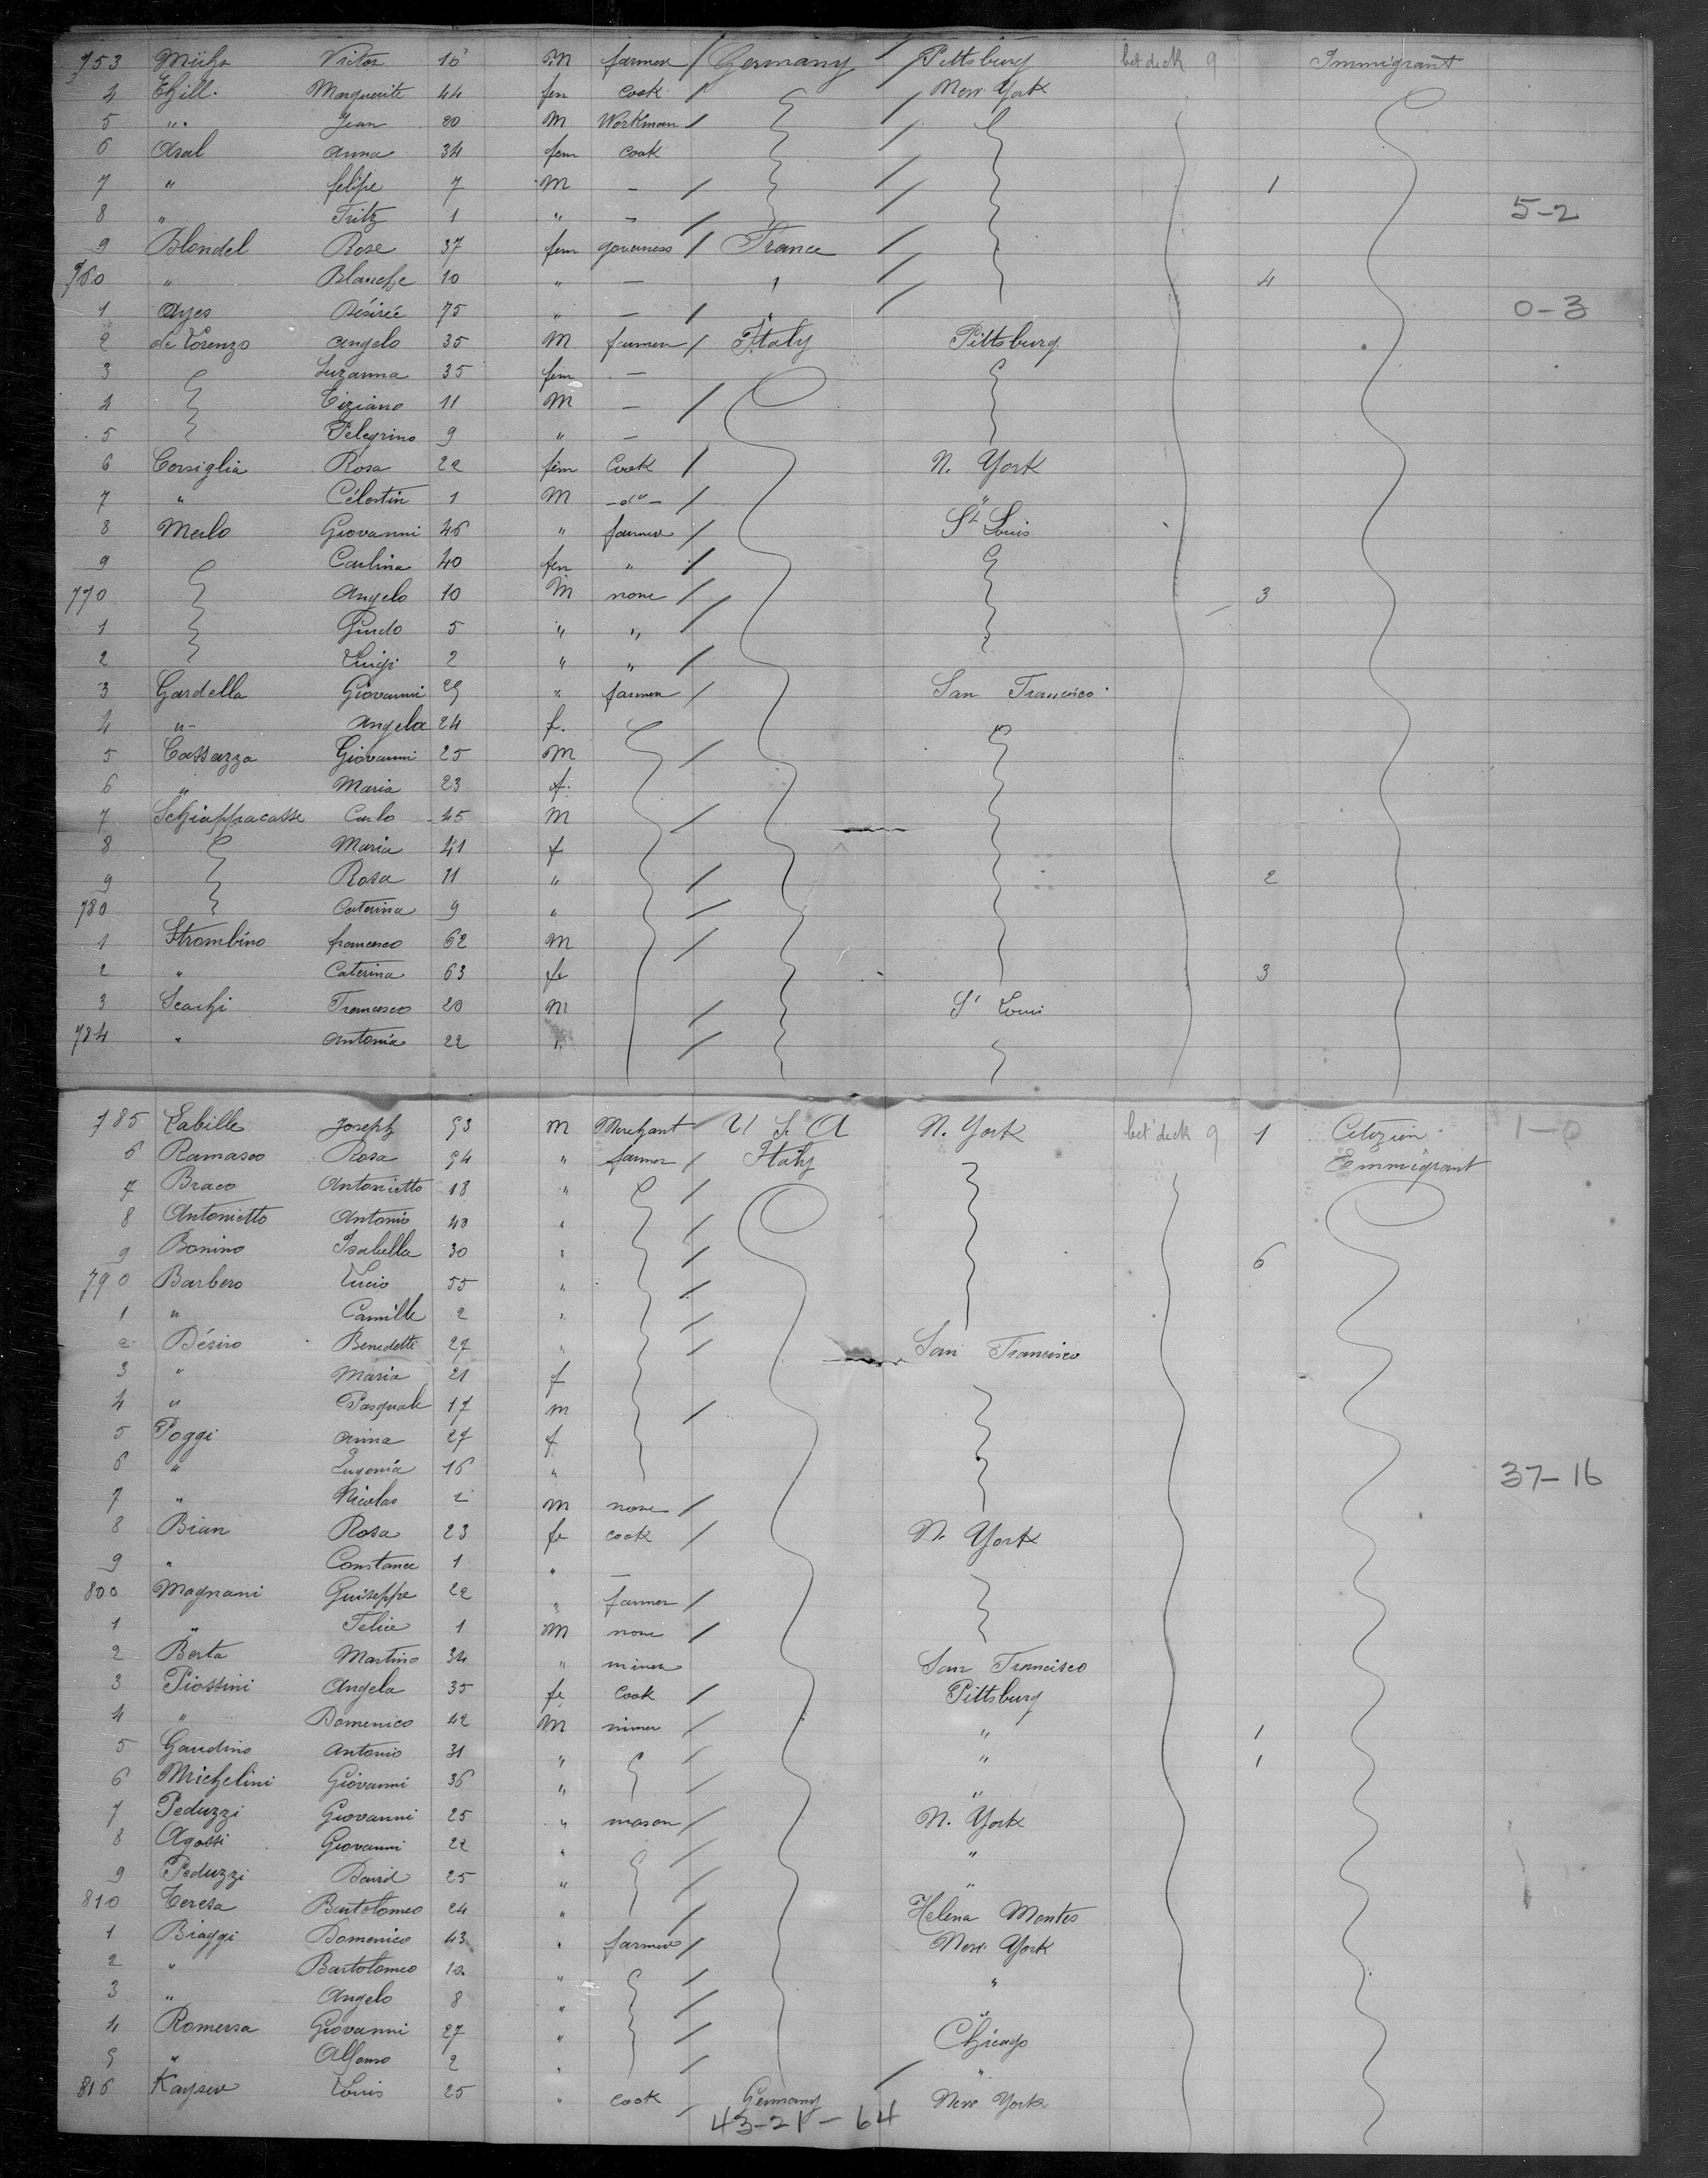 753 Victor m farmer Germany Pittsburg bet deck 9 Immigrant
4 Ehill. Marguerite 44 fem cook New York
5 " Jean 20 M Workman
6 Asal anna 34 fem cook
7 " felipe 7 M - 1
8 " Fritz 1 " - 5-2
9 Blondel Rose 37 fem governess France
760 " Blanche 10 " - " 4
1 Ayes Désirée 75 " - " 0-3
2 de Lorenzo angelo 35 M farmer Italy Pittsburg
3 Suzanna 35 fem -
4 Tiziano 11 M -
5 Pelegrino 9 " -
6 Corsiglia Rosa 22 fem Cook N. York
7 " Célestin 1 M -do- "
8 Merlo Giovanni 46 " farmer St Louis
9 Carlina 40 fem "
770 Angelo 10 M none 3
1 Guido 5 " "
2 Luigi 2 " "
3 Gardella Giovanni 29 " farmer San Francisco
4 " Angela 24 f.
5 Cassazza Giovanni 25 M
6 " Maria 23 f.
7 Schiappacasse Carlo 45 M
8 Maria 41 f
9 Rosa 11 " 2
780 Caterina 9 "
1 Strombino francesco 62 M
2 " Caterina 63 fe 3
3 Scachi Francesco 20 M St Louis
784 " Antonia 22 "
785 Labille Joseph 53 m Merchant U S A N. York bet deck 9 1 Citizien 1-0
6 Ramasco Rosa 54 " farmer Italy Emmigrant
7 Braco Antonietto 18 "
8 Antonietto Antonio 40 "
9 Bonino Isabella 30 " 6
790 Barbero Lucio 55 "
1 " Camille 2 "
2 Désiro Benedetti 27 " San Francisco
3 " Maria 21 f
4 " Pasquale 17 m
5 Poggi Anna 27 f
6 " Eugenia 16 " 37-16
7 " Nicolas 2 m none
8 Bian Rosa 23 fe cook N. York
9 " Constance 1 " -
800 Magnani Guiseppe 22 " farmer
1 " Felice 1 M none
2 Berta Martino 34 " miner San Francisco
3 Piossini Angela 35 fe Cook Pittsburg
4 " Domenico 42 M miner " 1
5 Gaudino Antonio 31 " " 1
6 Michelini Giovanni 36 " "
7 Peduzzi Giovanni 25 " mason N. York
8 Agosti Giovanni 22 " "
9 Peduzzi David 25 " "
810 Teresa Bartolomeo 24 " Helena Montes
1 Biaggi Domenico 43 " farmer New York
2 " Bartolomeo 10 " "
3 " Angelo 8 " "
4 Romersa Giovanni 27 " Chicago
5 " Alfonso 2 " "
816 Kayser Louis 25 " cook Germany New York
43-21-64